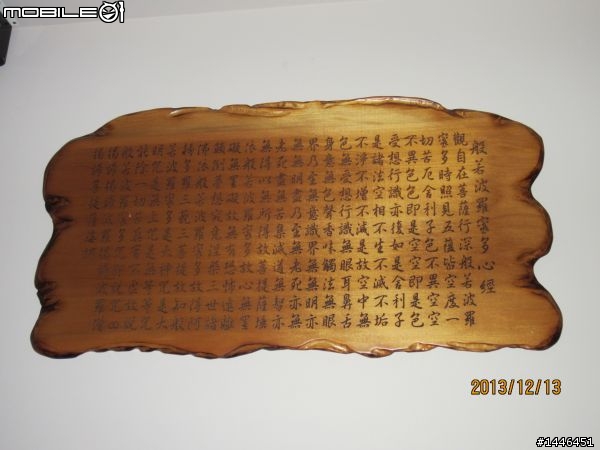 MOBILE01
般若波羅蜜多心經
觀自在菩薩行深般若波羅
蜜多時照見五蘊皆空度一
切苦厄舍利子色不異空空
不異色色即是空空即是色
受想行識亦復如是舍利子
是諸法空相不生不滅不垢
不淨不增不減是故空中無
色無受想行識無眼耳鼻舌
身意無色聲香味觸法無眼
界乃至無意識界無無明亦
無無明盡乃至無老死亦無
老死盡無苦集滅道無智亦
無得以無所得故菩提薩埵
依般若波羅蜜多故心無罣
礙無罣礙故無有恐怖遠離
顛倒夢想究竟涅槃三世諸
佛依般若波羅蜜多故得阿
耨多羅三藐三菩提故知般
若波羅蜜多是大神咒是大
明咒是無上咒是無等等咒
能除一切苦真實不虛故說
般若波羅蜜多咒即說咒曰
揭諦揭諦波羅揭諦波羅僧
揭諦菩提薩婆
2013/12/13
#1446451